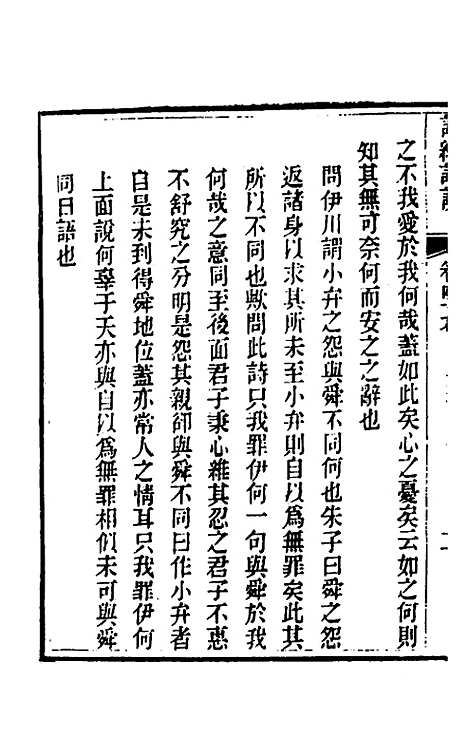 之不我愛於我何哉蓋如此矣心之憂矣云如之何則
知其無可奈何而安之之辭也
問伊川謂小弁之怨與舜不同何也朱子曰舜之怨
返諸身以求其所未至小弁則自以爲無罪矣此其
所以不同也歟問此詩只我罪伊何一句與舜於我
何哉之意同至後面君子秉心維其忍之君子不惠
不舒究之分明是怨其親卻與舜不同曰作小弁者
自是未到得舜地位蓋亦常人之情耳只我罪伊何
上面說何辜于天亦與自以爲無罪相似未可與舜
同日語也